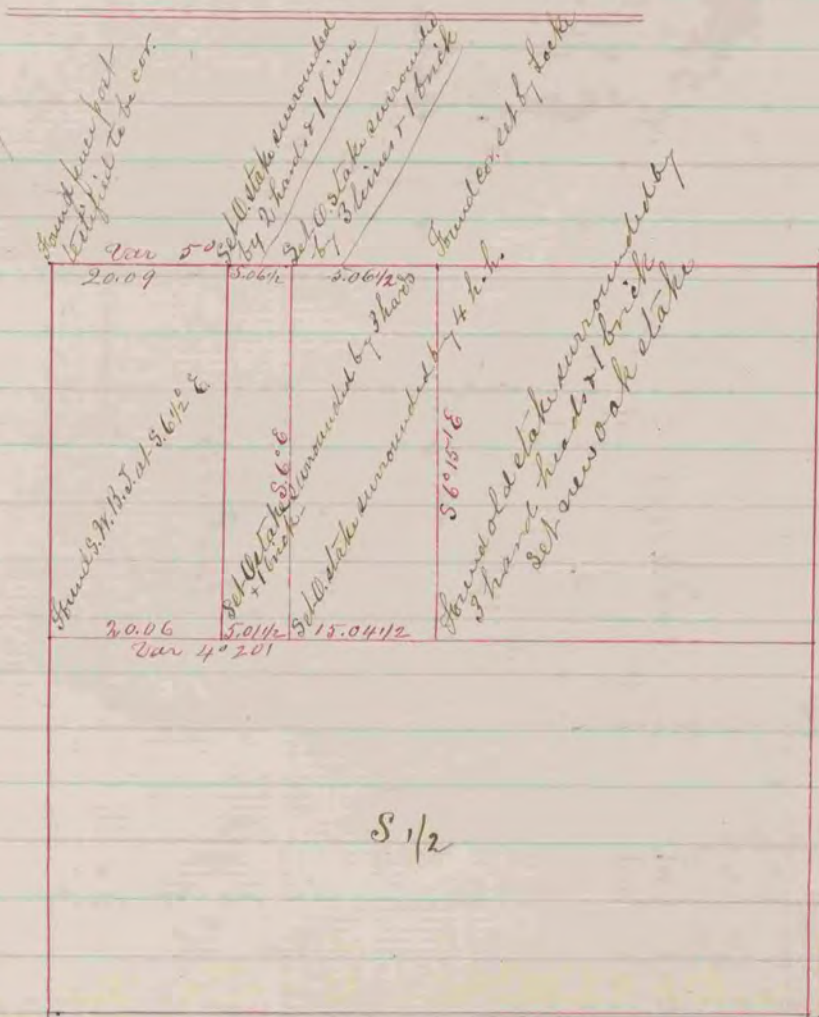 Found fence post
testified to be cor.
Set O. stake surrounded
by 2 hards & 1 lime
Set O. stake surrounded
by 3 limes & 1 brick
Found cor. set by Locke
Var 5°
20.09
5.06 1/2
5.06 1/2
Found S.W.B.T. at S. 6 1/2° E
Set O stake surrounded by 3 hards
+ 1 brick
S 6° E
Set O. stake surrounded by 4 h.h.
S 6° 15' E
Found old stake surrounded by
3 hard heads & 1 brick
Set new oak stake
20.06
5.01 1/2
15.04 1/2
Var 4° 20'
S 1/2